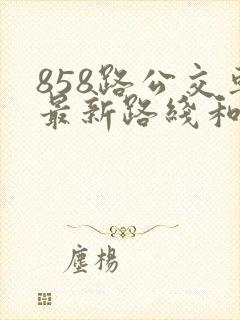 858路公交车
最新路綫和
塵楊